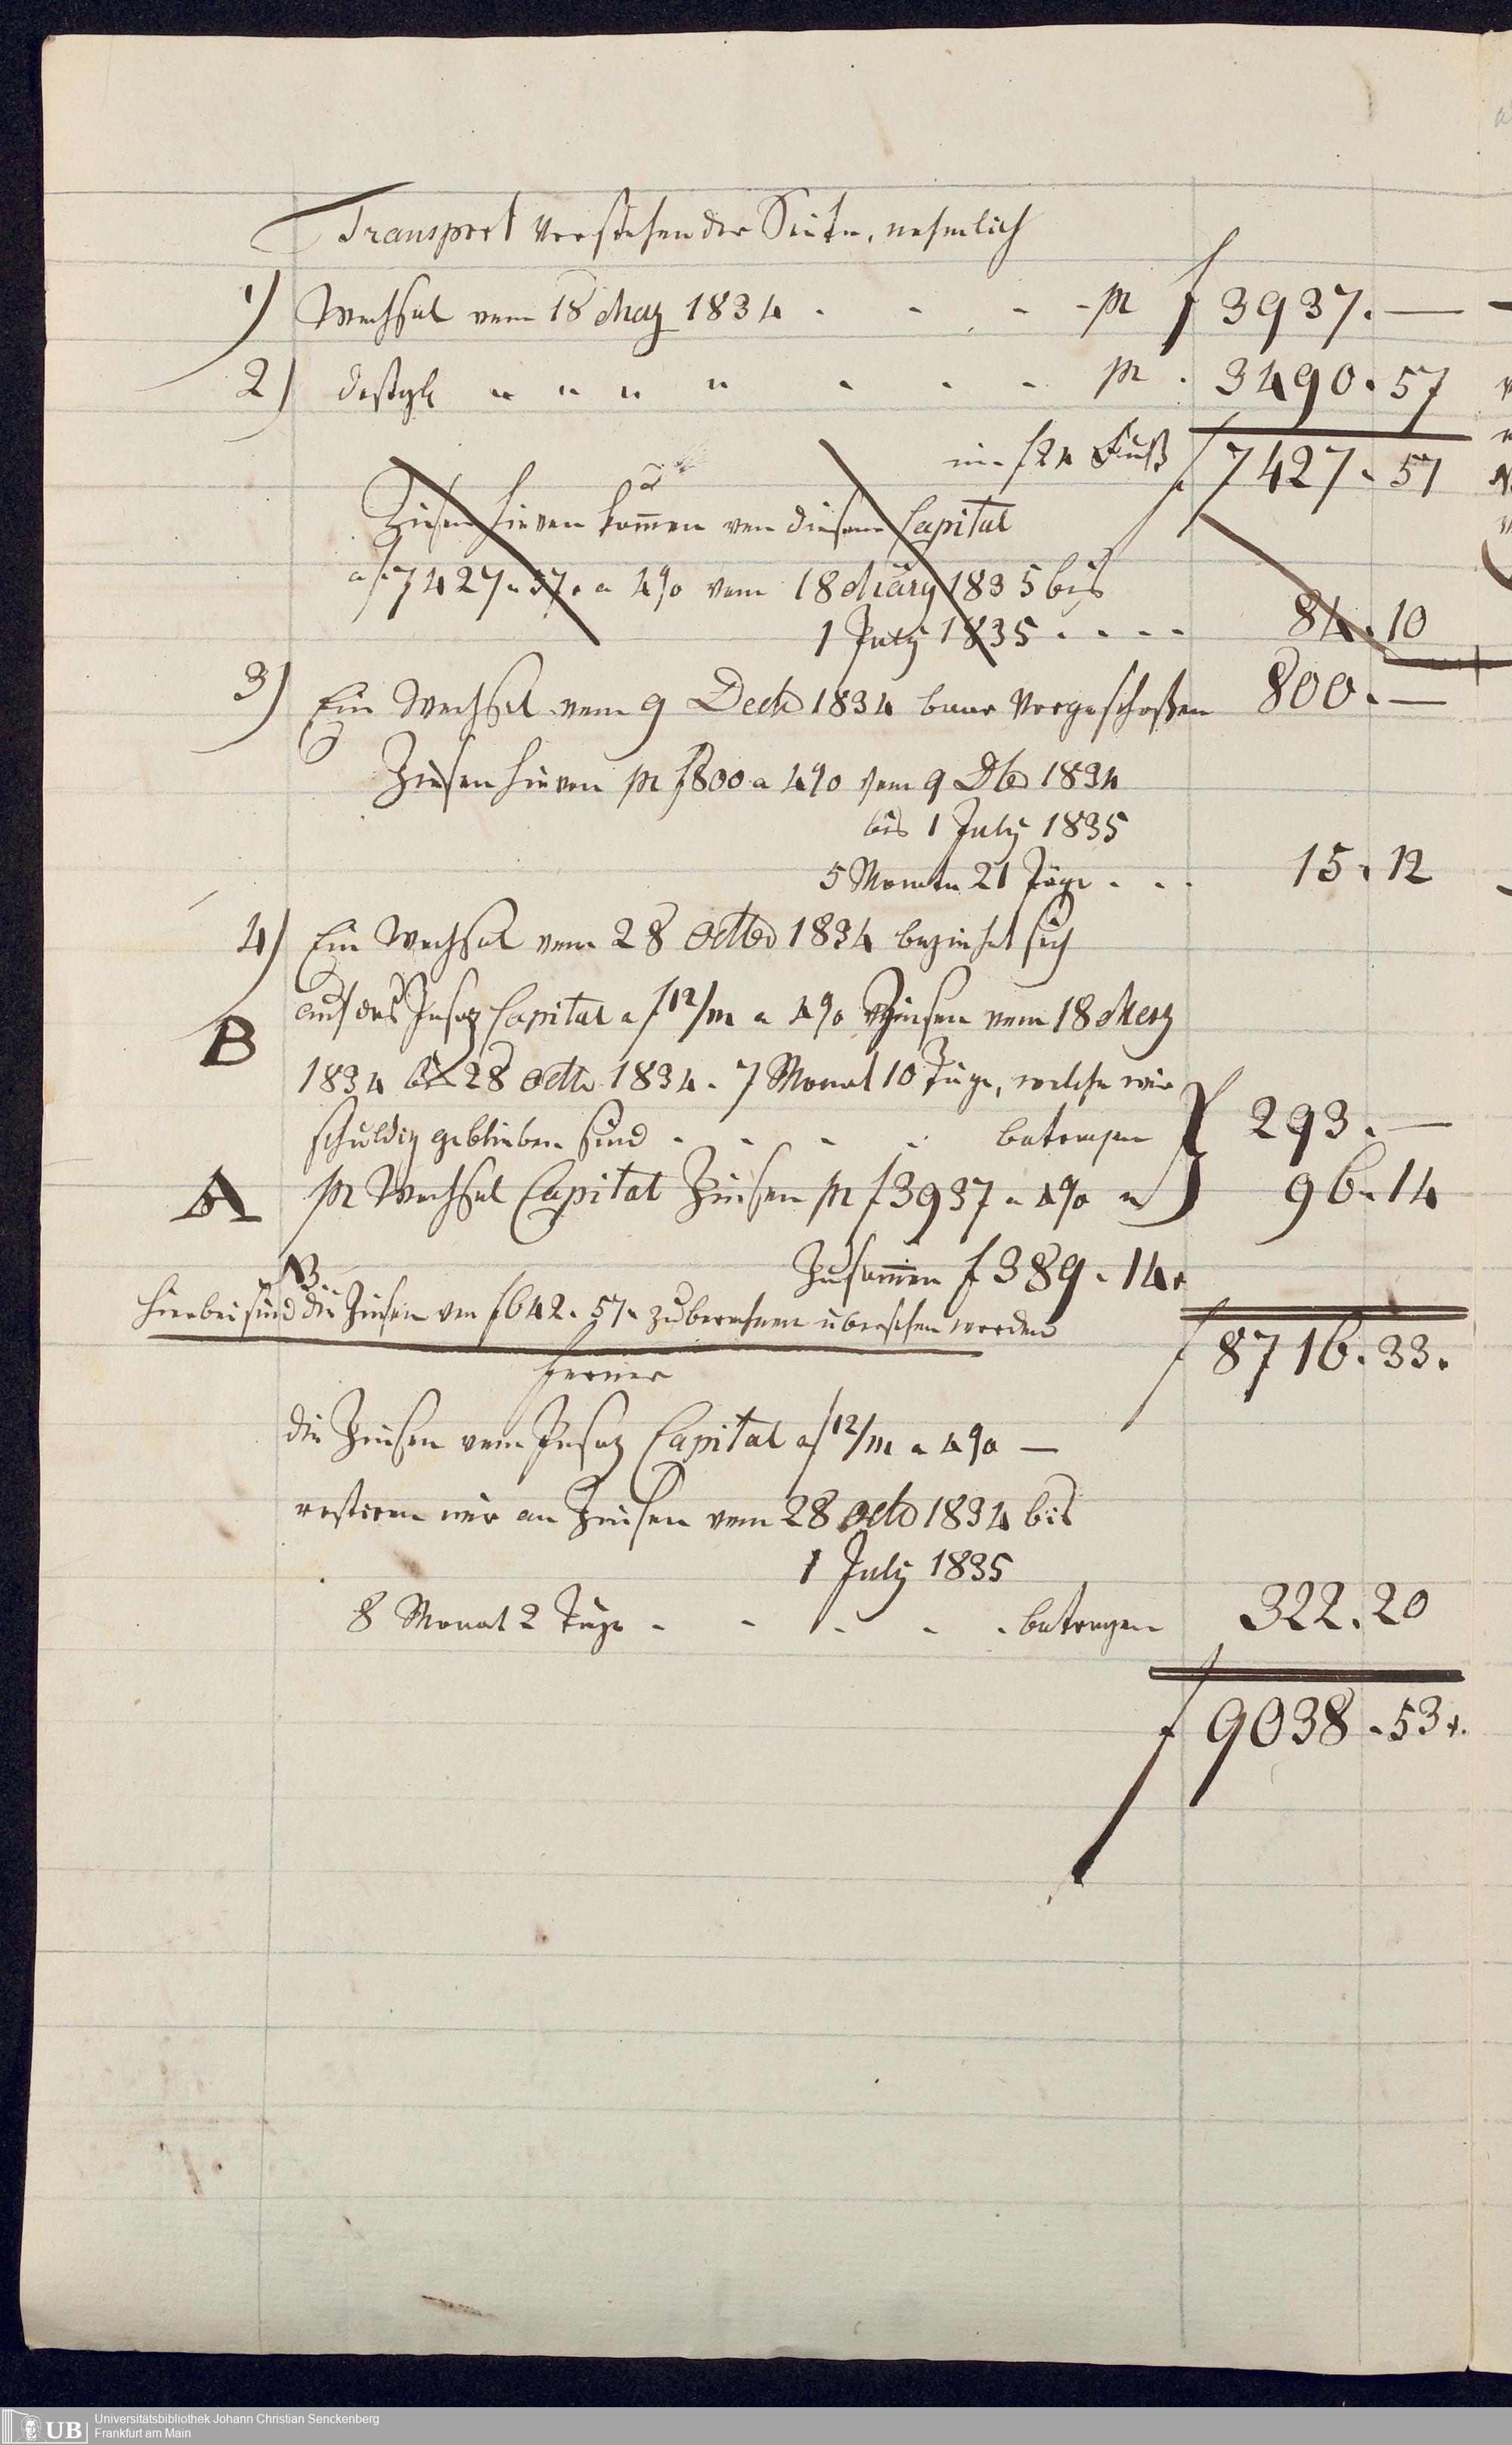 Transport vorstehender Seite, nehmlich
1) Wechsel vom 18 May 1834 . - . - - pr f 3937. —
2) desgl " " " " - - - pr . 3490. 57
im f 24 Fuß f 7427. 57
Zinsen hievon kom̄en von diesem Capital
a f 7427. 57. a 4% vom 18 März 1835 bis
1 July 1835 . - - - 84. 10
3) Ein Wechsel vom 9 Decb 1834 baar vorgeschoßen 800. —
Zinsen hievon pr f 800 a 4% vom 9 Db 1834
bis 1 July 1835
5 Monate 21 Täge . - . 15. 12
4) Ein Wechsel vom 28 Octbr 1834 beziehet sich
auf das Insaz Capital a f 12/m a 4% Zinsen vom 18 Merz
B
1834 bis 28 Octb 1834. 7 Monat 10 Täge, welche wir
schuldig geblieben sind - - - . betragen 293. —
A pr Wechsel Capital Zinsen pr f 3937 a 4% " 96. 14
Zusam̄en f 389. 14.
NB.
hierbei sind die Zinsen von f 642. 57. zu berechnen übersehen worden
f 8716. 33.
ferner
die Zinsen vom Insaz Capital a f 12/m a 4% —
restiren wir an Zinsen vom 28 Octb 1834 bis
1 July 1835
8 Monat 2 Täge - - - - . betragen 322. 20
f 9038. 53.
UB Universitätsbibliothek Johann Christian Senckenberg
Frankfurt am Main